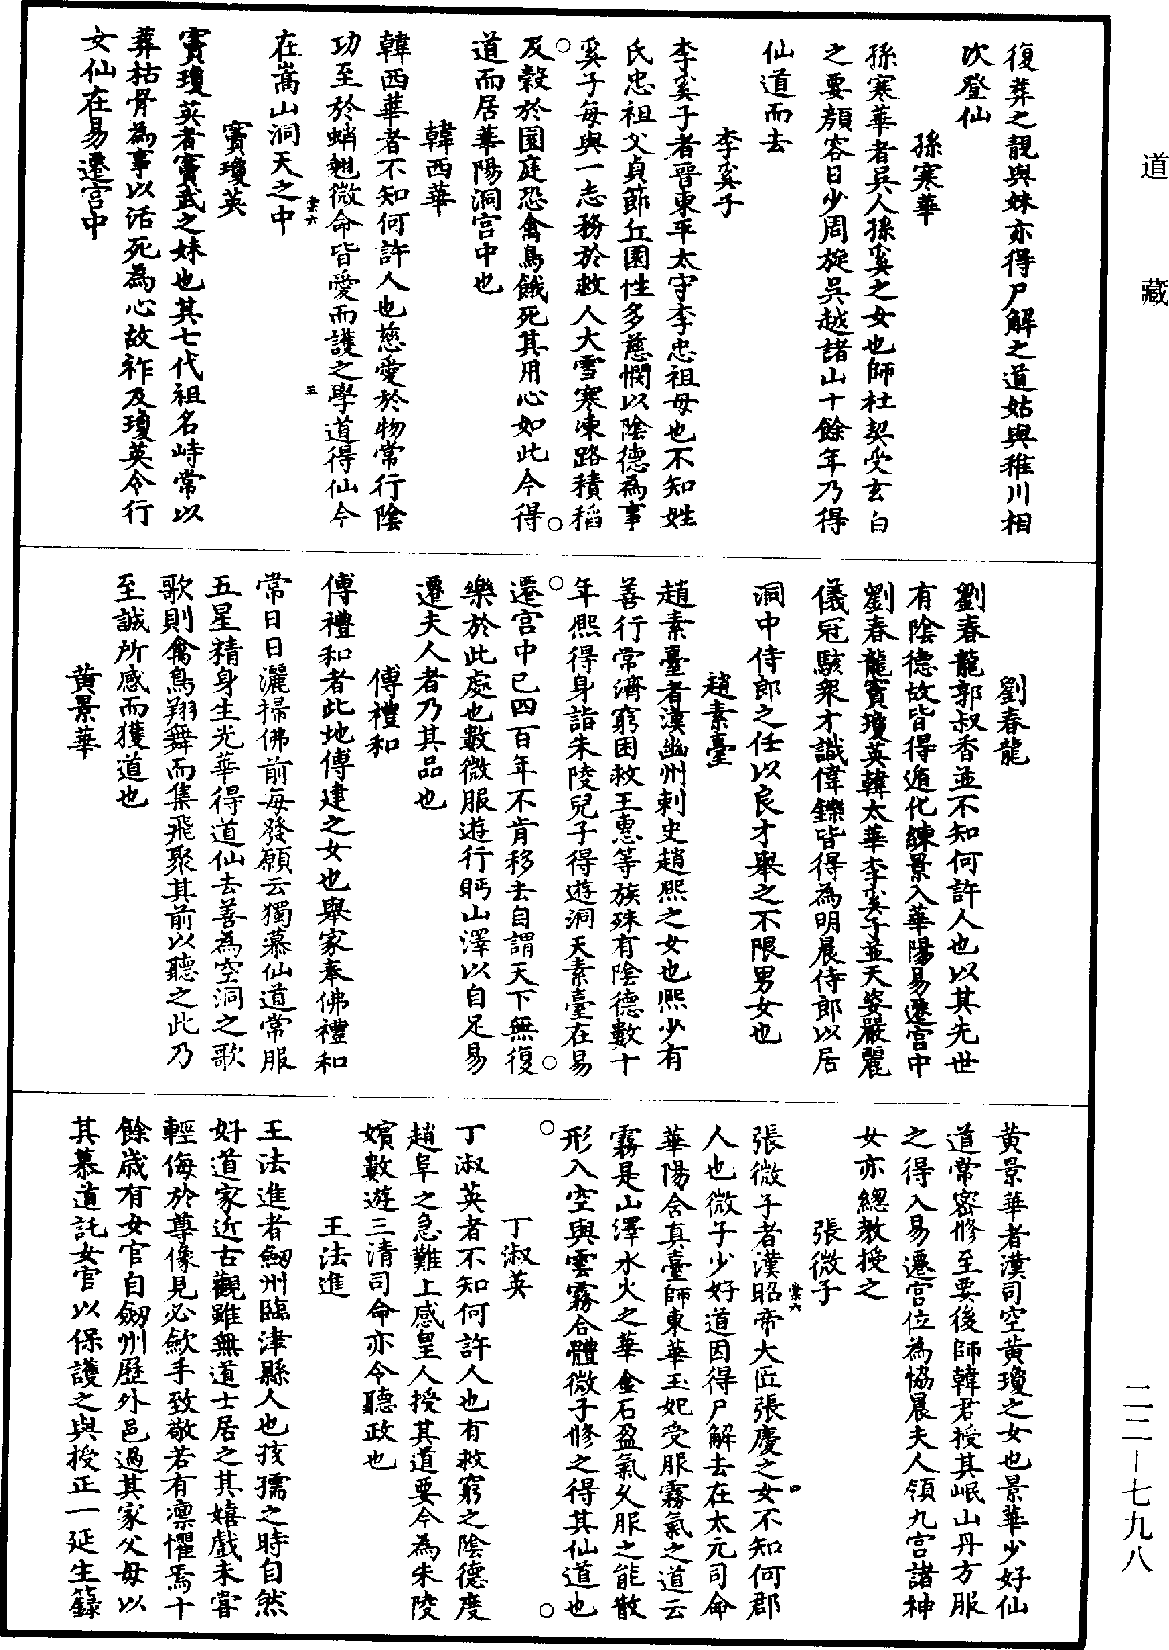 道藏
復葬之靚與妹亦得尸解之道姑與稚川相
次登仙
孫寒華
孫寒華者吳人孫奚之女也師杜契受玄白
之要顏容日少周旋吳越諸山十餘年乃得
仙道而去
李奚子
李奚子者晉東平太守李忠祖母也不知姓
氏忠祖父貞節丘園性多慈憫以陰德為事
奚子每與一志務於救人大雪寒凍路積稻
及穀於園庭恐禽鳥餓死其用心如此今得
道而居華陽洞宮中也
韓西華
韓西華者不知何許人也慈愛於物常行陰
功至於蛸翹微命皆愛而護之學道得仙今
在嵩山洞天之中
竇瓊英
竇瓊英者竇武之妹也其七代祖名峙常以
葬枯骨為事以活死為心故祚及瓊英今行
女仙在易遷宮中
劉春龍
劉春龍郭叔香並不知何許人也以其先世
有陰德故皆得遁化練景入華陽易遷宮中
劉春龍竇瓊英韓太華李奚子並天姿嚴麗
儀冠駭衆才識偉鑠皆得為明晨侍郎以居
洞中侍郎之任以良才舉之不限男女也
趙素臺
趙素臺者漢幽州刺史趙熙之女也熙少有
善行常濟窮困救王惠等族殊有陰德數十
年熙得身詣朱陵兒子得遊洞天素臺在易
遷宮中已四百年不肯移去自謂天下無復
樂於此處也數微服遊行眄山澤以自足易
遷夫人者乃其品也
傅禮和
傅禮和者此地傅建之女也舉家奉佛禮和
常日日灑掃佛前每發願云獨慕仙道常服
五星精身生光華得道仙去善為空洞之歌
歌則禽鳥翔舞而集飛聚其前以聽之此乃
至誠所感而獲道也
黃景華
黃景華者漢司空黃瓊之女也景華少好仙
道常密修至要後師韓君授其岷山丹方服
之得入易遷宮位為協晨夫人領九宮諸神
女亦總教授之
張微子
張微子者漢昭帝大匠張慶之女不知何郡
人也微子少好道因得尸解去在太元司命
華陽含真臺師東華玉妃受服霧氣之道云
霧是山澤水火之華金石盈氣久服之能散
形入空與雲霧合體微子修之得其仙道也
丁淑英
丁淑英者不知何許人也有救窮之陰德度
趙阜之急難上感皇人授其道要今為朱陵
嬪數遊三清司命亦令聽政也
王法進
王法進者劒州臨津縣人也孩孺之時自然
好道家近古觀雖無道士居之其嬉戲未嘗
輕侮於尊像見必歛手致敬若有凛懼焉十
餘歲有女官自劒州歷外邑過其家父母以
其慕道託女官以保護之與授正一延生籙
二二—七九八